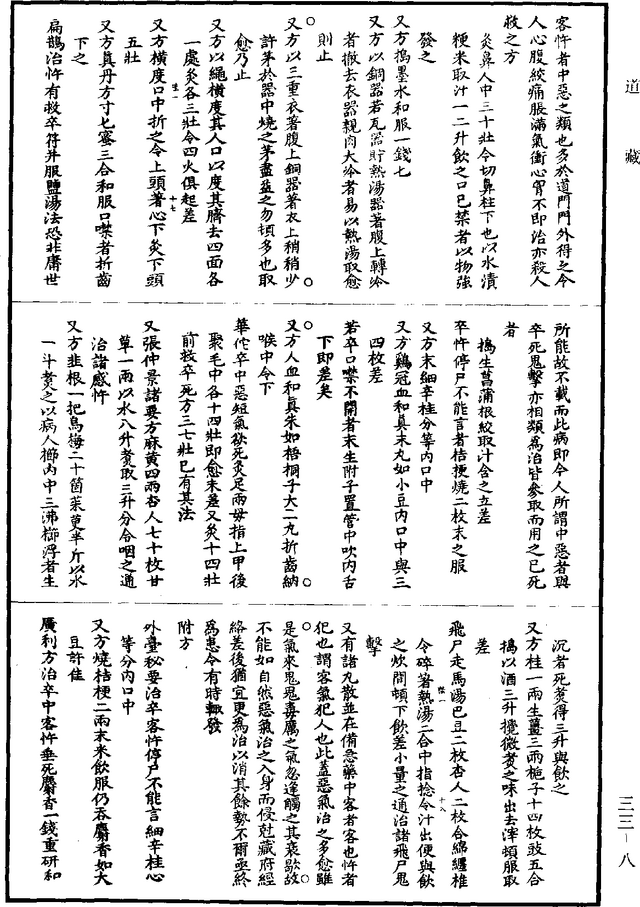 道藏
客忤者中惡之類也多於道門門外得之令
人心腹絞痛脹滿氣衝心胷不即治亦殺人
救之方
灸鼻人中三十壯令切鼻柱下也以水漬
粳米取汁一二升飲之口已禁者以物強
發之
又方搗墨水和服一錢匕
又方以銅器若瓦器貯熱湯器著腹上轉冷
者撤去衣器親肉大冷者易以熱湯取愈
則止
又方以三重衣著腹上銅器著衣上稍稍少
許茅於器中燒之茅盡益之勿頓多也取
愈乃止
又方以繩橫度其人口以度其臍去四面各
一處灸各三壯令四火俱起差
又方橫度口中折之令上頭著心下灸下頭
五壯
又方真丹方寸匕蜜三合和服口噤者折齒
下之
扁鵲治忤有救卒符并服鹽湯法恐非庸世
所能故不載而此病即今人所謂中惡者與
卒死鬼擊亦相類為治皆參取而用之已死
者
搗生菖蒲根絞取汁含之立差
卒忤停尸不能言者桔梗燒二枚末之服
又方末細辛桂分等內口中
又方鷄冠血和真朱丸如小豆內口中與三
四枚差
若卒口噤不開者末生附子置管中吹內舌
下即差矣
又方人血和真朱如梧桐子大二丸折齒納
喉中令下
華佗卒中惡短氣欲死灸足兩母指上甲後
聚毛中各十四壯即愈未差又灸十四壯
前救卒死方三七壯已有其法
又張仲景諸要方麻黃四兩杏人七十枚甘
草一兩以水八升煑取三升分令咽之通
治諸感忤
又方韭根一把烏梅二十箇茱萸半斤以水
一斗煑之以病人櫛內中三沸櫛浮者生
沉者死煑得三升與飲之
又方桂一兩生薑三兩梔子十四枚豉五合
搗以酒三升攪微煑之味出去滓頓服取
差
飛尸走馬湯巴豆二枚杏人二枚合綿纏椎
令碎著熱湯二合中指捻令汁出便與飲
之炊間頓下飲差小量之通治諸飛尸鬼
擊
又有諸丸散並在備急藥中客者客也忤者
犯也謂客氣犯人也此蓋惡氣治之多愈雖
是氣來鬼鬼毒厲之氣忽逢觸之其衰歇故
不能如自然惡氣治之入身而侵尅藏府經
絡差後猶宜更為治以消其餘勢不爾亟終
為患令有時輒發
附方
外臺秘要治卒客忤停尸不能言細辛桂心
等分內口中
又方燒桔梗二兩末米飲服仍吞麝香如大
豆許佳
廣利方治卒中客忤垂死麝香一錢重研和
三三-八